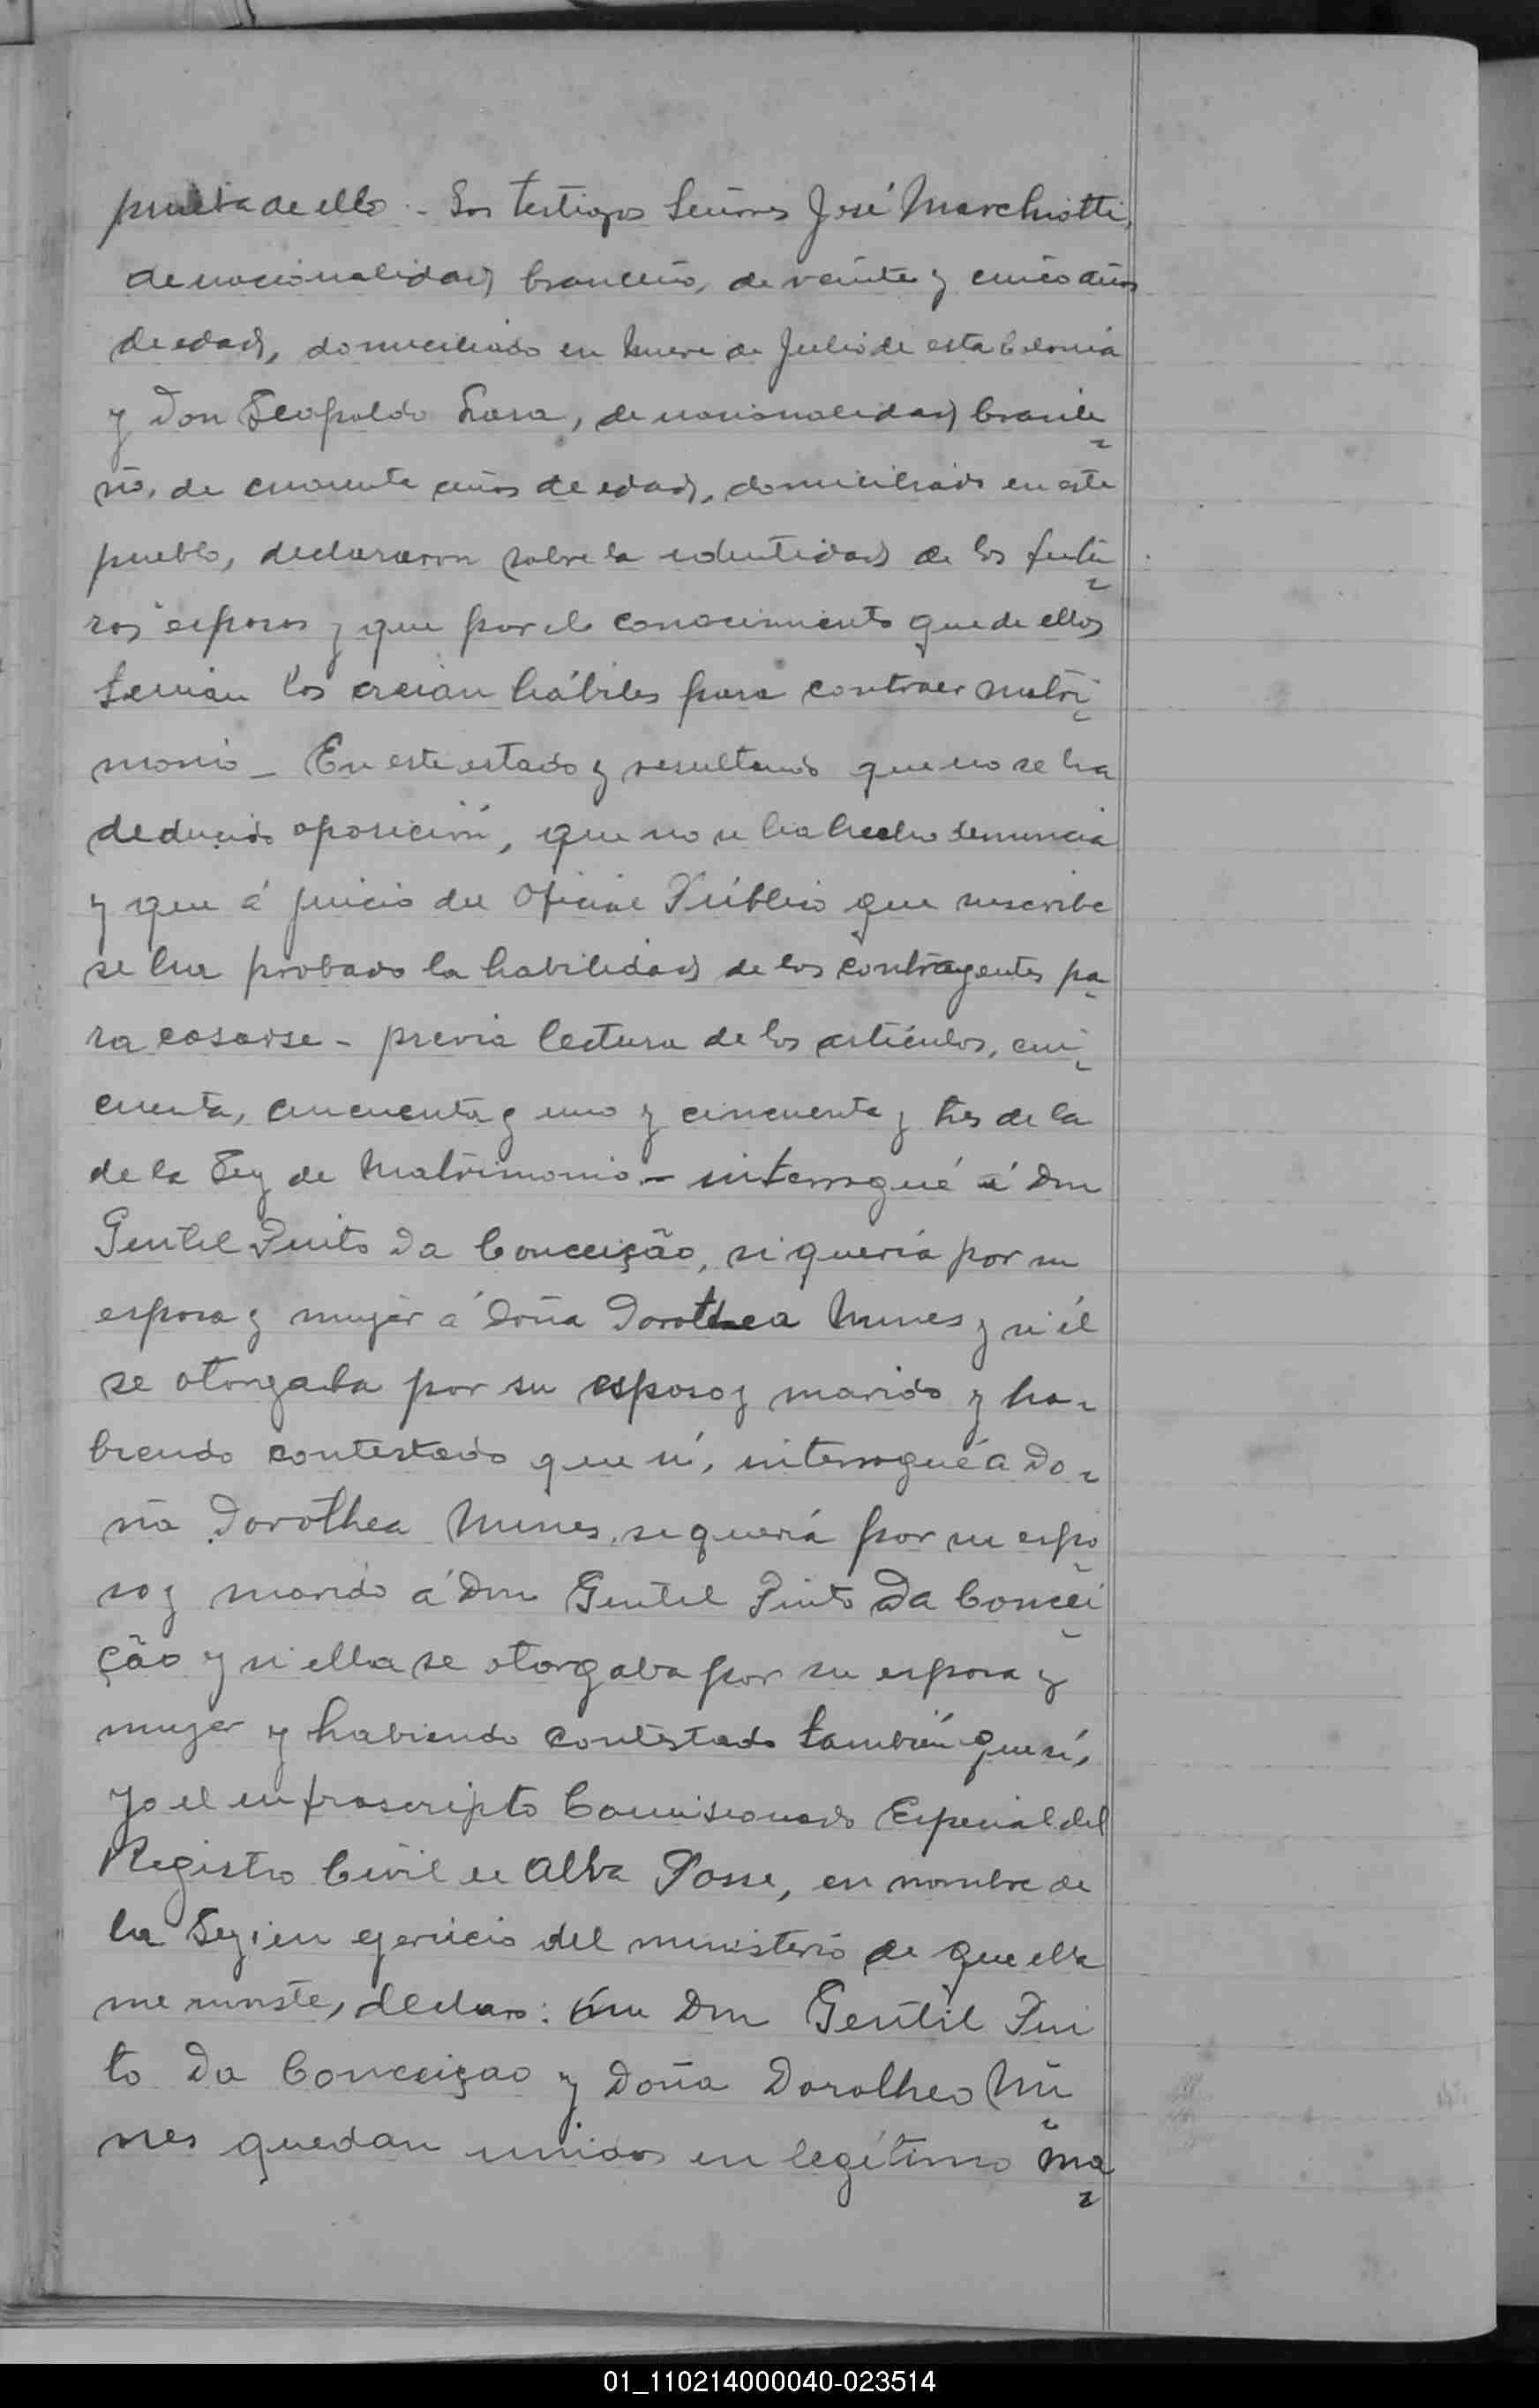 prueba de ello.- Los testigos Señores José Marchiotti,
de nacionalidad brasileño, de veinte y cinco años
de edad, domiciliado en Nueve de Julio de esta Colonia
y Don Leopoldo Lara, de nacionalidad brasile-
ño, de cuarenta años de edad, domiciliado en este
pueblo, declararon sobre la identidad de los futu-
ros esposos y que por el conocimiento que de ellos
tenian los creian hábiles para contraer matri-
monio - En este estado y resultando que no se ha
deducido oposición, que no se ha hecho denuncia
y que á juicio del Oficial Público que suscribe
se ha probado la habilidad de los contrayentes pa-
ra casarse - previa lectura de los artículos, cin-
cuenta, cincuenta y uno y cincuenta y tres de la
de la Ley de Matrimonio - interrogué á Don
Gentil Pinto Da Conceição, si quería por su
esposa y mujer á Doña Dorothea Nunes y si él
se otorgaba por su esposo y marido y ha-
biendo contestado que sí, interrogué a Do-
ña Dorothea Nunes, si quería por su espo-
so y marido á Don Gentil Pinto Da Concei-
ção y si ella se otorgaba por su esposa y
mujer y habiendo contestado también que sí,
yo el infrascripto Comisionado Especial del
Registro Civil de Alba Posse, en nombre de
la Ley i en egercicio del ministerio de que ella
me inviste, declaro: Que Don Gentil Pin
to Da Conceiçao y Doña Dorothea Nu-
nes quedan unidos en legítimo ma-
01_110214000040-023514